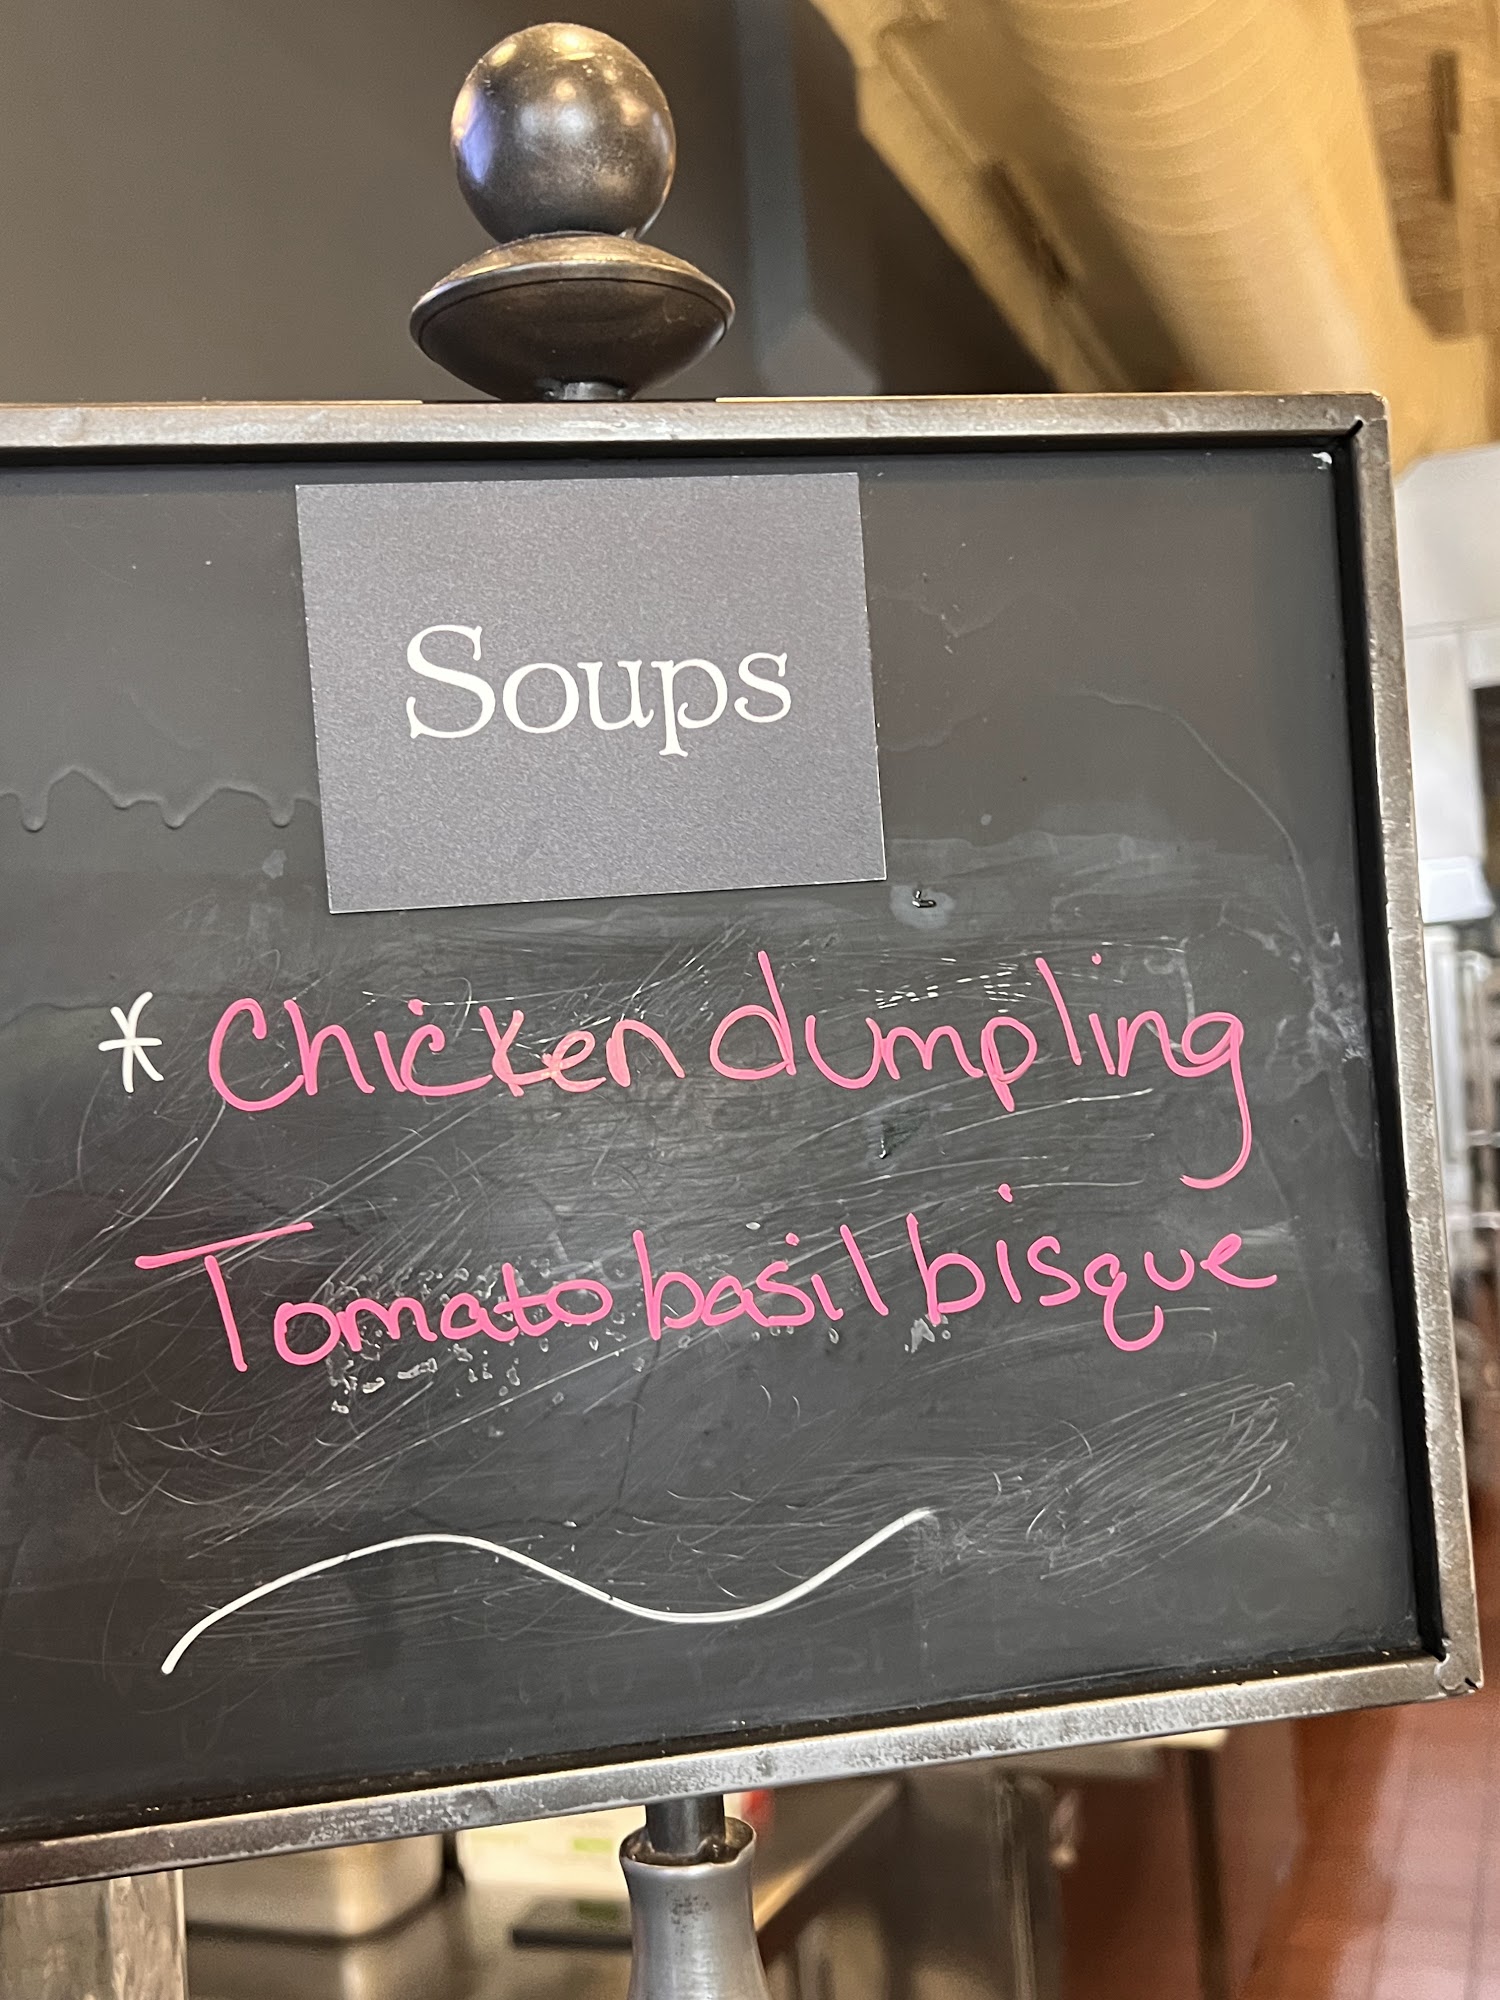 Soups
* Chicken dumpling
Tomato basil bisque